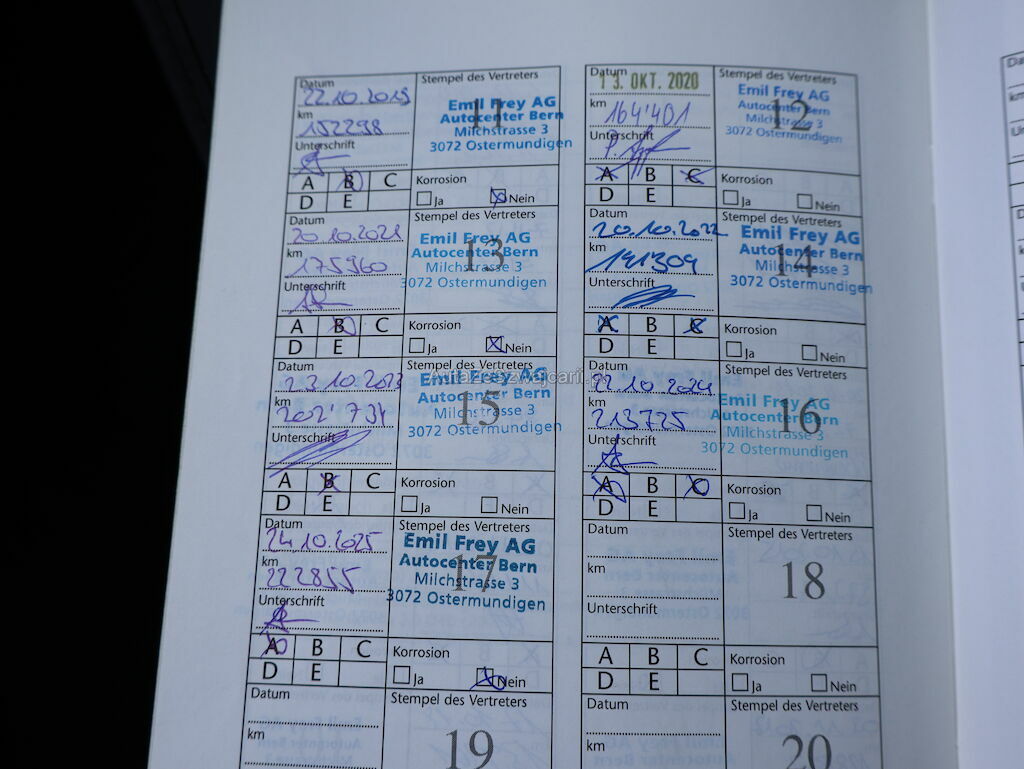 Datum
22.10.2019
km
152298
Unterschrift
Stempel des Vertreters
11
Emil Frey AG
Autocenter Bern
Milchstrasse 3
3072 Ostermundigen
A B C
D E
Korrosion
Ja Nein
Datum
13. OKT. 2020
km
164'401
Unterschrift
Stempel des Vertreters
12
Emil Frey AG
Autocenter Bern
Milchstrasse 3
3072 Ostermundigen
A B C
D E
Korrosion
Ja Nein
Datum
20.10.2021
km
175960
Unterschrift
Stempel des Vertreters
13
Emil Frey AG
Autocenter Bern
Milchstrasse 3
3072 Ostermundigen
A B C
D E
Korrosion
Ja Nein
Datum
20.10.2022
km
191309
Unterschrift
Stempel des Vertreters
14
Emil Frey AG
Autocenter Bern
Milchstrasse 3
3072 Ostermundigen
A B C
D E
Korrosion
Ja Nein
Datum
23 10 2023
km
202'734
Unterschrift
Stempel des Vertreters
15
Emil Frey AG
Autocenter Bern
Milchstrasse 3
3072 Ostermundigen
A B C
D E
Korrosion
Ja Nein
Datum
22.10.2024
km
213725
Unterschrift
16
Emil Frey AG
Autocenter Bern
Milchstrasse 3
3072 Ostermundigen
A B C
D E
Korrosion
Ja Nein
Datum
24.10.2025
km
222855
Unterschrift
Stempel des Vertreters
17
Emil Frey AG
Autocenter Bern
Milchstrasse 3
3072 Ostermundigen
A B C
D E
Korrosion
Ja Nein
Datum
km
Unterschrift
Stempel des Vertreters
18
A B C
D E
Korrosion
Ja Nein
Datum
km
Stempel des Vertreters
19
Datum
km
Stempel des Vertreters
20